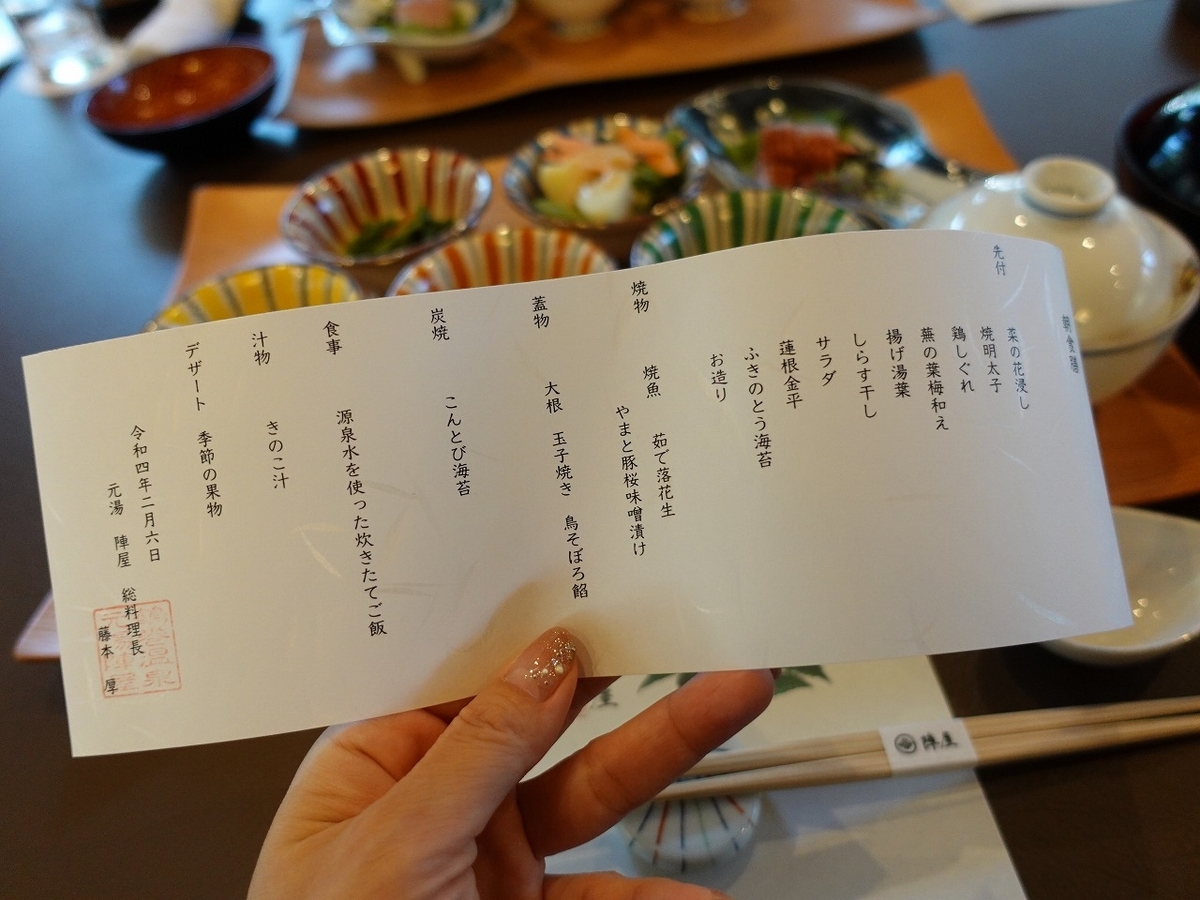 朝食膳
先付
菜の花浸し
焼明太子
鶏しぐれ
蕪の葉梅和え
揚げ湯葉
しらす干し
サラダ
蓮根金平
ふきのとう海苔
お造り
焼物
焼魚 茹で落花生
やまと豚桜味噌漬け
蓋物
大根 玉子焼き 鳥そぼろ餡
炭焼
こんとび海苔
食事
源泉水を使った炊きたてご飯
汁物
きのこ汁
デザート 季節の果物
令和四年二月六日
元湯 陣屋 総料理長
藤本 厚
陣屋